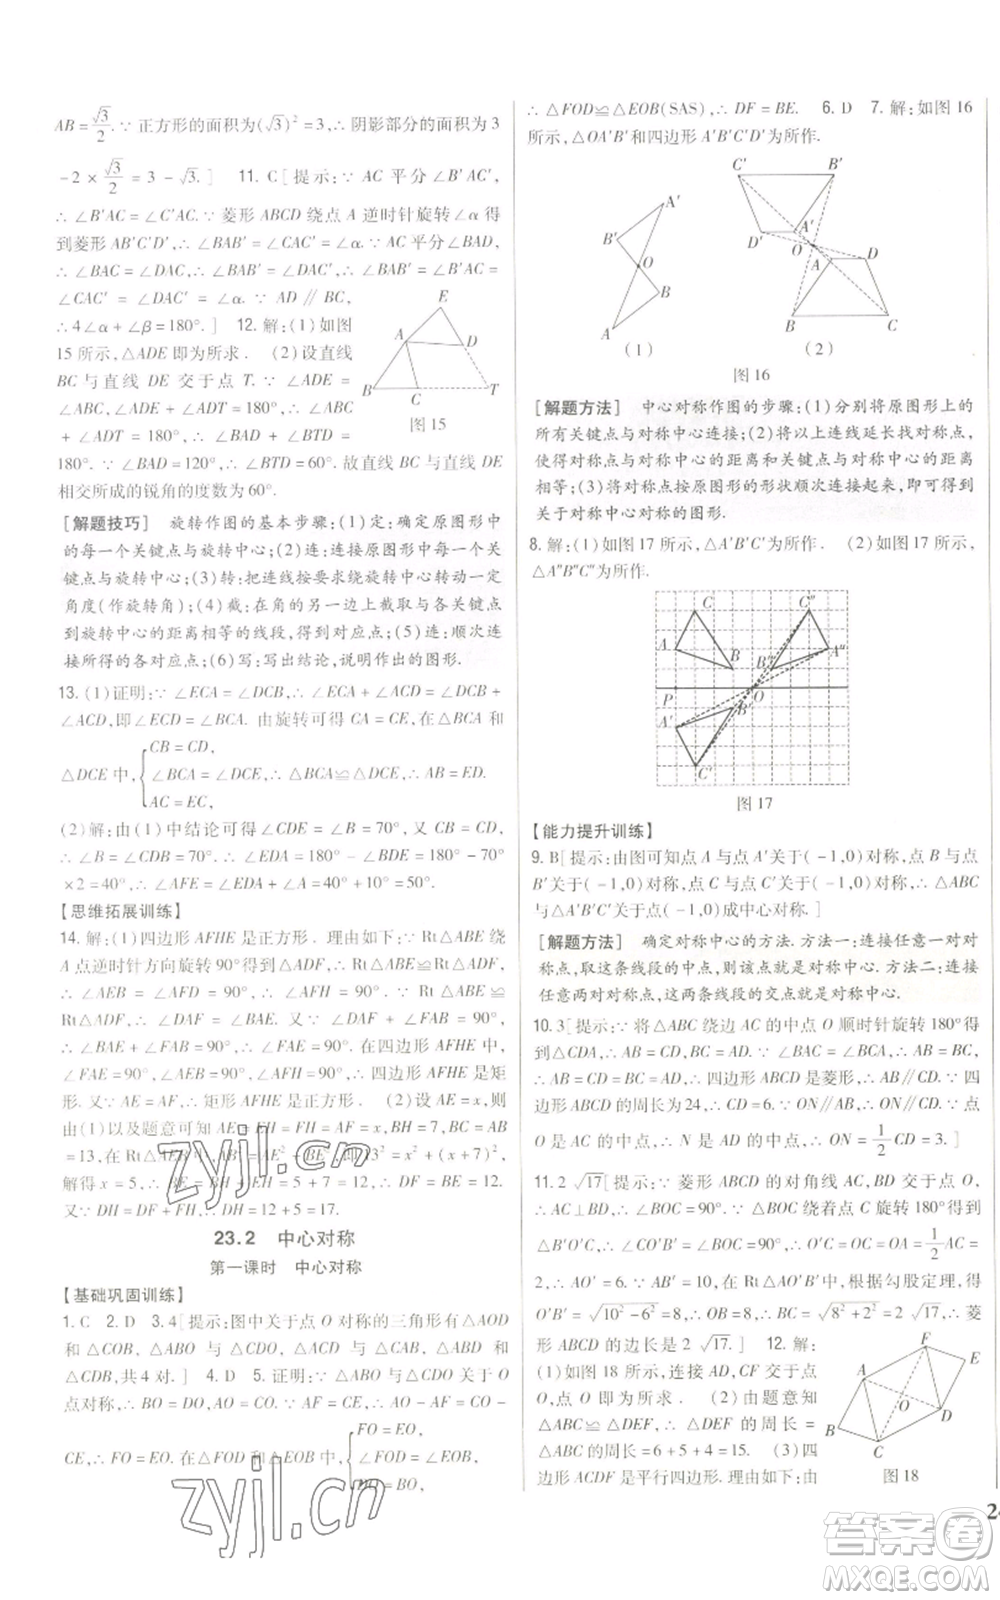 AB = √3/2. ∵ 正方形的面积为(√3)² = 3,∴ 阴影部分的面积为 3
- 2 × √3/2 = 3 - √3.] 11. C[提示:∵ AC 平分∠B'AC',
∴ ∠B'AC = ∠C'AC. ∵ 菱形 ABCD 绕点 A 逆时针旋转∠α 得
到菱形 AB'C'D',∴ ∠BAB' = ∠CAC' = ∠α. ∵ AC 平分∠BAD,
∴ ∠BAC = ∠DAC,∴ ∠B'AC = ∠DAC',∴ ∠BAB' = ∠B'AC
= ∠CAC' = ∠DAC' = ∠α. ∵ AD ∥ BC,
∴ 4∠α + ∠β = 180°.] 12. 解:(1)如图
15 所示,△ADE 即为所求. (2)设直线
BC 与直线 DE 交于点 T. ∵ ∠ADE =
∠ABC, ∠ADE + ∠ADT = 180°,∴ ∠ABC
+ ∠ADT = 180°, ∴ ∠BAD + ∠BTD =
180°. ∵ ∠BAD = 120°,∴ ∠BTD = 60°. 故直线 BC 与直线 DE
相交所成的锐角的度数为 60°.
E
A
D
B
C
T
图 15
[解题技巧] 旋转作图的基本步骤:(1)定:确定原图形中
的每一个关键点与旋转中心;(2)连:连接原图形中每一个关
键点与旋转中心;(3)转:把连线按要求绕旋转中心转动一定
角度(作旋转角);(4)截:在角的另一边上截取与各关键点
到旋转中心的距离相等的线段,得到对应点;(5)连:顺次连
接所得的各对应点;(6)写:写出结论,说明作出的图形.
13. (1)证明:∵ ∠ECA = ∠DCB,∴ ∠ECA + ∠ACD = ∠DCB +
∠ACD,即∠ECD = ∠BCA. 由旋转可得 CA = CE,在△BCA 和
△DCE 中,{CB = CD,
∠BCA = ∠DCE,∴ △BCA≌△DCE,∴ AB = ED.
AC = EC,
(2)解:由(1)中结论可得∠CDE = ∠B = 70°,又 CB = CD,
∴ ∠B = ∠CDB = 70°,∴ ∠EDA = 180° - ∠BDE = 180° - 70°
×2 = 40°,∴ ∠AFE = ∠EDA + ∠A = 40° + 10° = 50°.
【思维拓展训练】
14. 解:(1)四边形 AFHE 是正方形. 理由如下:∵ Rt△ABE 绕
A 点逆时针方向旋转 90°得到△ADF,∴ Rt△ABE≌Rt△ADF,
∴ ∠AEB = ∠AFD = 90°,∴ ∠AFH = 90°. ∵ Rt△ABE ≌
Rt△ADF,∴ ∠DAF = ∠BAE. 又∵ ∠DAF + ∠FAB = 90°,
∴ ∠BAE + ∠FAB = 90°,∴ ∠FAE = 90°. 在四边形 AFHE 中,
∠FAE = 90°,∠AEB = 90°,∠AFH = 90°,∴ 四边形 AFHE 是矩
形. 又∵ AE = AF,∴ 矩形 AFHE 是正方形. (2)设 AE = x.
由(1)以及题意可知:AE = EH = FH = AF = x,BH = 7,BC = AB
= 13,在 Rt△AEB 中,AB² = AE² + BE²,即 13² = x² + (x + 7)²,
解得 x = 5,∴ BE = BH + EH = 5 + 7 = 12,∴ DF = BE = 12.
又∵ DH = DF + FH,∴ DH = 12 + 5 = 17.
23.2 中心对称
第一课时 中心对称
【基础巩固训练】
1. C 2. D 3. 4[提示:图中关于点 O 对称的三角形有△AOD
和△COB, △ABO 与△CDO, △ACD 与△CAB, △ABD 与
△CDB,共 4 对.] 4. D 5. 证明:∵ △ABO 与△CDO 关于 O
点对称,∴ BO = DO,AO = CO. ∵ AF = CE,∴ AO - AF = CO -
CE,∴ FO = EO. 在△FOD 和△EOB 中,{FO = EO,
∠FOD = ∠EOB,
DO = BO,
∴ △FOD≌△EOB(SAS),∴ DF = BE. 6. D 7. 解:如图 16
所示,△OA'B'和四边形 A'B'C'D'为所作.
A'
B'
O
B
A
(1)
C'
B'
D'
A'
O
A
D
B
C
(2)
图 16
[解题方法] 中心对称作图的步骤:(1)分别将原图形上的
所有关键点与对称中心连接;(2)将以上连线延长找对称点,
使得对称点与对称中心的距离和关键点与对称中心的距离
相等;(3)将对称点按原图形的形状顺次连接起来,即可得到
关于对称中心对称的图形.
8. 解:(1)如图 17 所示,△A'B'C'为所作. (2)如图 17 所示,
△A″B″C″为所作.
C
C″
A
B
B″
A″
P
O
A'
B'
C'
图 17
【能力提升训练】
9. B[提示:由图可知点 A 与点 A'关于( -1,0)对称,点 B 与点
B'关于( -1,0)对称,点 C 与点 C'关于( -1,0)对称,∴ △ABC
与△A'B'C'关于点( -1,0)成中心对称.]
[解题方法] 确定对称中心的方法. 方法一:连接任意一对对
称点,取这条线段的中点,则该点就是对称中心. 方法二:连接
任意两对对称点,这两条线段的交点就是对称中心.
10. 3[提示:∵ 将△ABC 绕边 AC 的中点 O 顺时针旋转 180°得
到△CDA,∴ AB = CD,BC = AD,∠BAC = ∠DCA. ∵ AB = BC,
∴ AB = CD = BC = AD,∴ 四边形 ABCD 是菱形,AB∥CD. ∵ 四
边形 ABCD 的周长为 24,∴ CD = 6. ∵ ON∥AB,∴ ON∥CD. ∵ 点
O 是 AC 的中点,∴ N 是 AD 的中点,∴ ON = 1/2 CD = 3.]
11. 2√17[提示:∵ 菱形 ABCD 的对角线 AC,BD 交于点 O,
∴ AC⊥BD,∴ ∠BOC = 90°. ∵ △BOC 绕着点 C 旋转 180°得
到△B'O'C,∴ ∠CO'B' = ∠BOC = 90°,∴ O'C = OC = OA = 1/2 AC =
2,∴ AO' = 6. ∵ AB' = 10,在 Rt△AO'B'中,根据勾股定理,得
O'B' = √(10² - 6²) = 8,∴ OB = 8,∴ BC = √(8² + 2²) = 2√17,∴ 菱
形 ABCD 的边长是 2√17.] 12. 解:
(1)如图 18 所示,连接 AD,CF 交于点
O,点 O 即为所求. (2)由题意知
△ABC≌△DEF,∴ △DEF 的周长 =
△ABC 的周长 = 6 + 5 + 4 = 15. (3)四
边形 ACDF 是平行四边形. 理由如下:由
F
E
A
O
B
D
C
图 18
24
zyjl.cn
zyjl.cn
答案圈
MXQE.COM